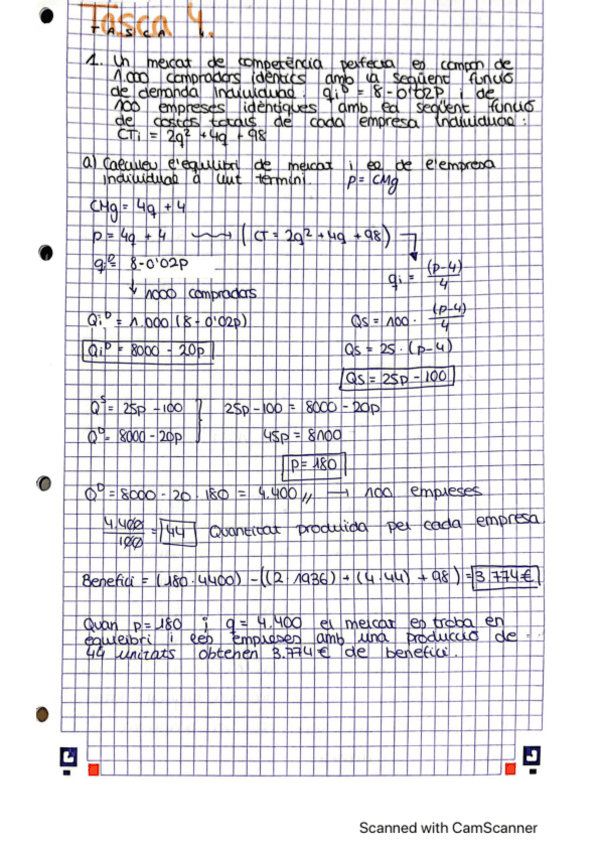 Tasca 4.
TASCA
1. Un mercat de competència perfecta es compon de
1.000 compradors idèntics amb la següent funció
de demanda individual: qi^D = 8 - 0'02P i de
100 empreses idèntiques amb la següent funció
de costos totals de cada empresa individual:
CTi = 2q² + 4q + 98
a) Calculeu l'equilibri de mercat i el de l'empresa
individual a curt termini. p = CMg
CMg = 4q + 4
p = 4q + 4 ⟿ (CT = 2q² + 4q + 98)
qi^D = 8 - 0'02p
qi = (p-4)/4
↓ 1000 compradors
Qi^D = 1.000 (8 - 0'02p)
Qs = 100 · (p-4)/4
Qi^D = 8000 - 20p
Qs = 25 · (p-4)
Qs = 25p - 100
Q^S = 25p - 100 } 25p - 100 = 8000 - 20p
Q^D = 8000 - 20p 45p = 8100
p = 180
Q^D = 8000 - 20 · 180 = 4.400 // → 100 empreses
4.400/100 = 44 Quantitat produida per cada empresa
Benefici = (180 · 4400) - ((2 · 1936) + (4 · 44) + 98) = 3.774€
Quan p = 180 i q = 4.400 el mercat es troba en
equilibri i les empreses amb una producció de
44 unitats obtenen 3.774€ de benefici.
Scanned with CamScanner